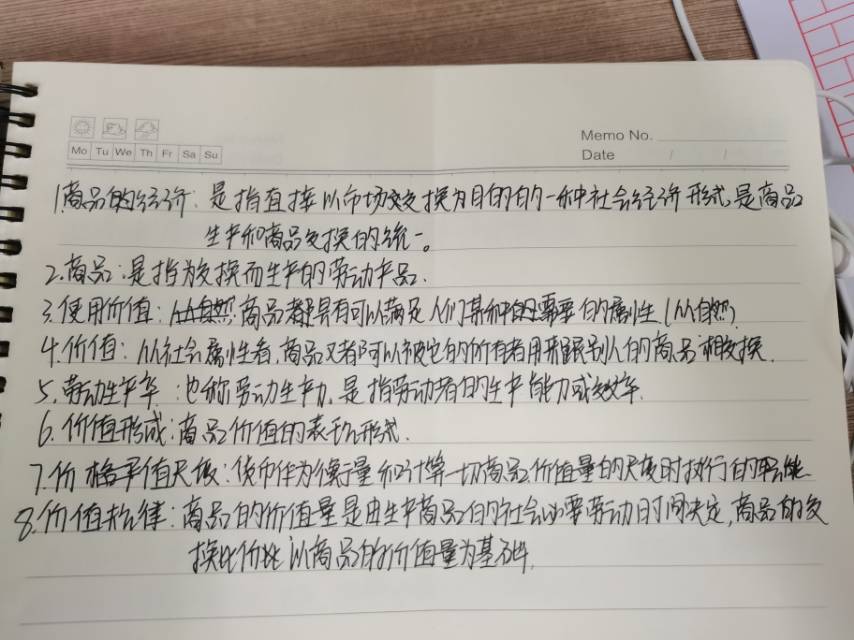 Mo Tu We Th Fr Sa Su
Memo No.
Date / /
1.商品的经济：是指直接以市场交换为目的的一种社会经济形式，是商品
生产和商品交换的统一。
2.商品：是指为交换而生产的劳动产品．
3.使用价值：从自然 商品都是具有可以满足人们某种的需要的属性（从自然）
4.价值：从社会属性看，商品又都可以被它的所有者用来跟别人的商品相交换．
5.劳动生产率：也称劳动生产力，是指劳动者的生产能力或效率．
6.价值形式：商品价值的表现形式．
7.价格 值尺度：货币作为衡量和计算一切商品价值量的尺度时执行的职能
8.价值规律：商品的价值量是由生产商品的社会必要劳动时间决定，商品的交
换比价比以商品的价值量为基础．